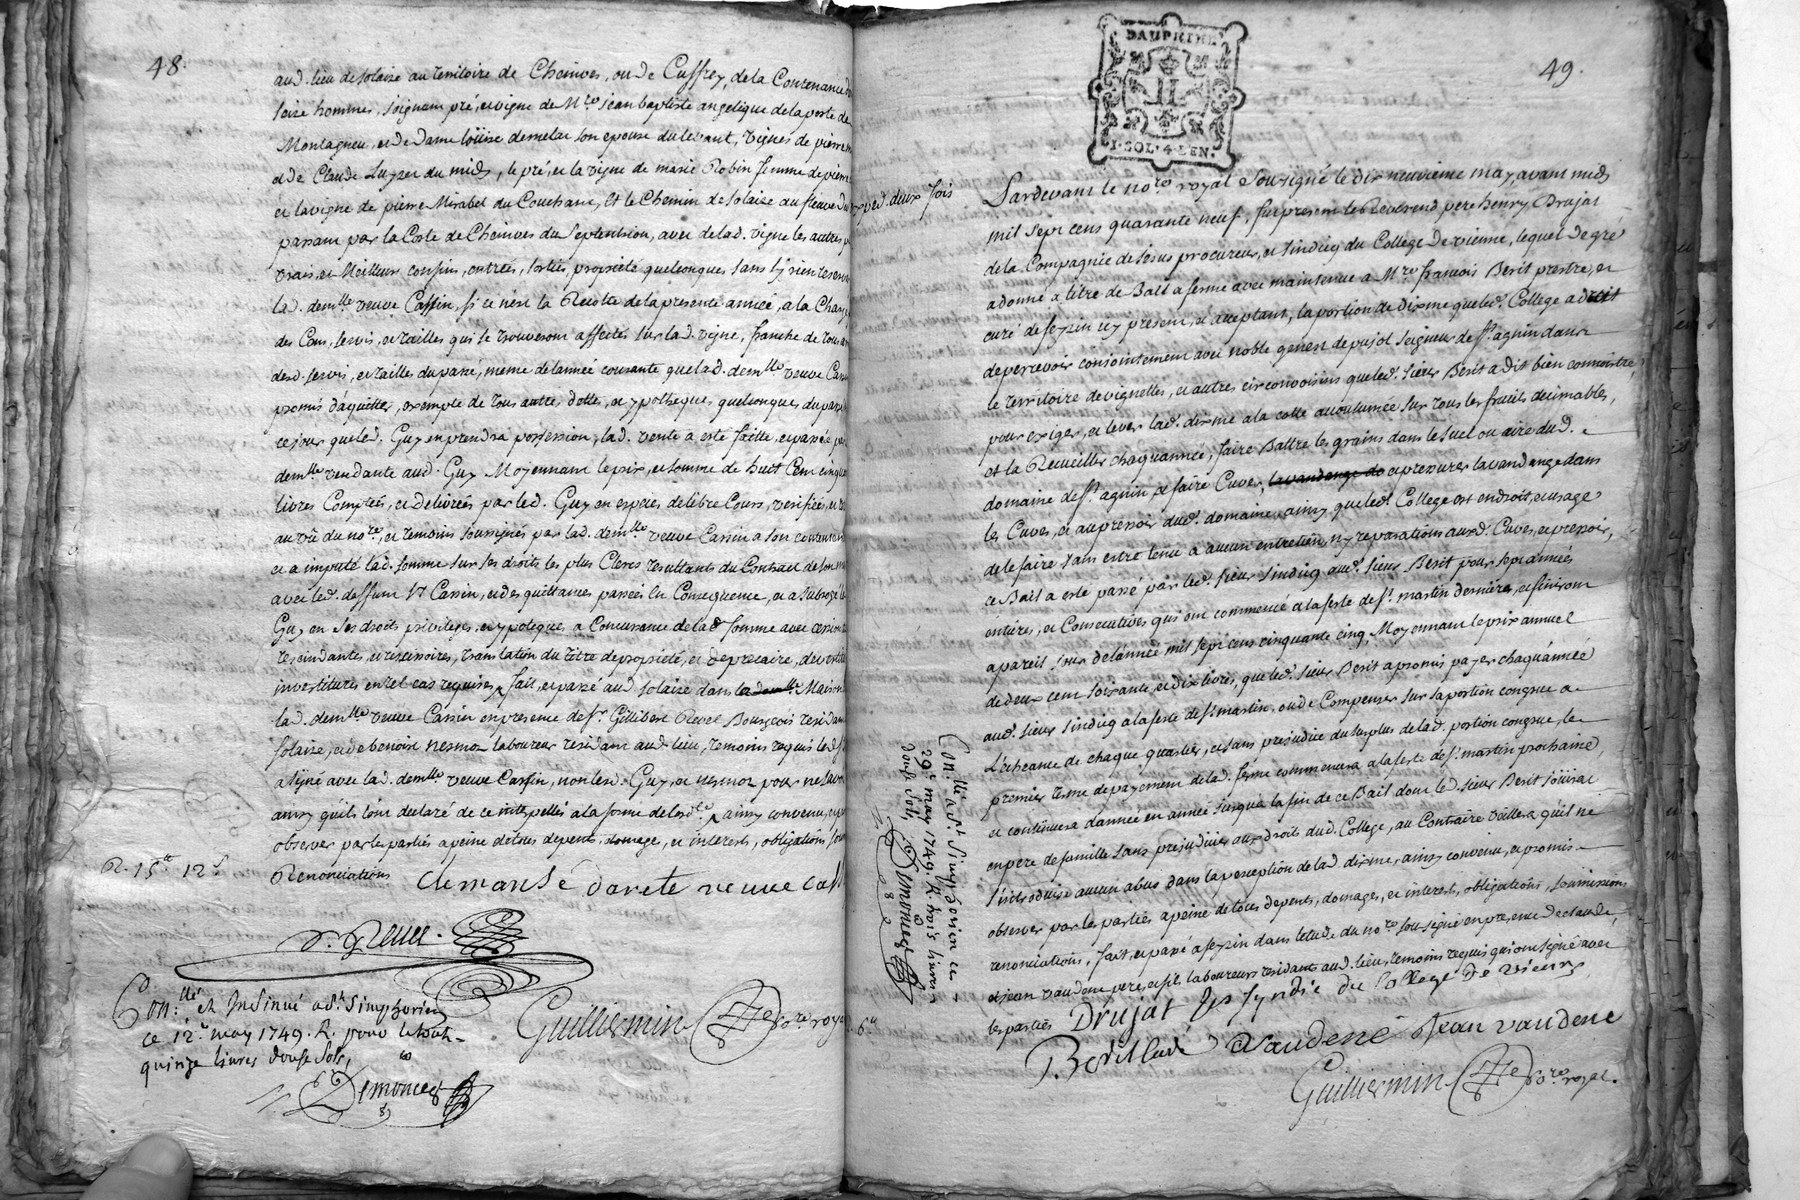 48.
aud. lieu de solaize au territoire de Cheinves, ou de Cuffrey, de la Contenance d
seize hommes, joignant pré, et vigne de Mre jean baptiste angelique de la porte de
Montagneu, et de Dame loüise demelat son epouse du levant, vignes de pierre
et de Claude Luyzet du midy, le pré, et la vigne de marie Robin femme de pierre
et la vigne de pierre Mirabel du Couchant, et le Chemin de solaize au fleuve du
passant par la Coste de Cheinves du Septentrion, avec de lad. vigne les autres
vrais, et Meilleurs confins, entrées, sorties, proprieté quelconques sans s'y rien reserver
lad. demlle veuve Cassin, si ce n'est la Recolte de la presente année, a la Charge
des Cens, servis, et tailles qui se trouveront affectés sur lad. vigne, franche de tous
desd. servis, et tailles du passé, meme de lannée courante que lad. demlle veuve Cassin
promis d'aquitter, exempte de tous autres dettes, et ypotheques quelconques du passé
ce jour que led. Guy en prendra possession, lad. vente a esté faitte, et passée par
demlle vendante aud. Guy Moyennant le prix, et somme de huit Cent cinq
livres Comptés, et delivrés par led. Guy en especes de libre Cours, verifiées, et
au vû du nore, et temoins soussignés par lad. demlle veuve Cassin a son contentement
et a imputé lad. somme sur ses droits les plus Clers resultants du Contract de son
avec led. deffunt Sr Cassin, et des quittances passées En Consequence, et a subrogé le
Guy en ses droits privileges, et ypoteques a Concurrance de lad. somme avec cession
rescindantes, et rescisoires, translation du titre de proprieté, et de precaire, devestiture
investitures en tel cas requises, fait, et passé aud. solaize dans la demlle Maison
lad. demlle veuve Cassin en presence de sr Gillibert Revel Bourgeois residant
solaize, et de benoist nesmoz laboureur residant aud. lieu, temoins requis led. sr
a signé avec lad. demlle veuve Cassin, non led. Guy, et nesmoz pour ne savoir
ainsy qu'ils l'ont declaré de ce interpellés a la forme de lordce, ainsy convenu, et
observer par les partiés a peine de tous depents, domage, et interets, obligations, sou
Renonciations clemansé dareste veuve cass
R. 15tt 12s
Revel.
Conllé et Insinué a St Simphorien
ce 12e may 1749. R. pour le tout
quinze livres douse sols,
Demonceg
Guillermin nore royal
49.
DAUPHINE
II
1·SOL·4·DEN.
exped. deux fois
Pardevant le nore royal soussigné le dix neuvieme may, avant midy
mil sept cens quarante neuf, fut present le Reverend pere henry Drujat
de la Compagnie de Jesus procureur, et sindicq du College de vienne, lequel de gré
a donné a titre de Bail a ferme avec maintenue a Mre francois Berit prestre, et
curé de feyzin icy present, et acceptant, la portion de Dixme que led. College a droit
de percevoir conjointement avec noble genest de pujol seigneur de st agnin dans
le territoire de vignettes, et autres circonvoisins que led. sieur Berit a dit bien connoistre
pour exiger, et lever lad. dixme a la cotte accoutumée sur tous les fruits decimables,
et la Recueillir chaqu'année, faire Battre les grains dans le suel ou aire dud.
domaine de st agnin et faire Cuver, la vandange de et pressurer la vandange dans
les Cuves, et au pressoir dud. domaine, ainsy que led. College est en droit, et usage
de le faire sans estre tenu a aucun entretien, ny reparations auxd. Cuves, et pressoir,
ce Bail a esté passé par led. sieur sindicq aud. sieur Berit pour sept années
entieres, et Consecutives qui ont commencé a la feste de st martin derniere, et finiront
a pareil jour de lannée mil sept cens cinquante cinq, Moyennant le prix annuel
de deux cent soixante, et dix livres, que led. sieur Berit a promis payer chaqu'année
aud. sieur sindicq a la feste de st martin, ou de Compenser sur sa portion congrue a
L'echeance de chaque quartier, et sans prejudice du surplus de lad. portion congrue, le
premier terme de payement de lad. ferme commencera a la feste de st martin prochaine,
et continuera d'année en année jusqua la fin de ce Bail dont le d. sieur Berit joüira
en pere de famille sans prejudicier aux droits dud. College, au Contraire veillera qu'il ne
s'introduise aucun abus dans la perception de lad. dixme, ainsy convenu, et promis
observer par les partiés a peine de tous depents, domages, et interests, obligations, soumissions
renonciations, fait, et passé a feyzin dans letude du nore soussigné en presence de claude,
et jean vaudene pere, et fil laboureurs residants aud. lieu, temoins requis qui ont signé avec
les partiés Drujat Jes syndic du college de vienne
Berit Curé vaudené Jean vaudene
Guillermin nore royal.
Conllé a St Simphorien ce
29e may 1749. R. trois livres
douse sols,
Demonceg